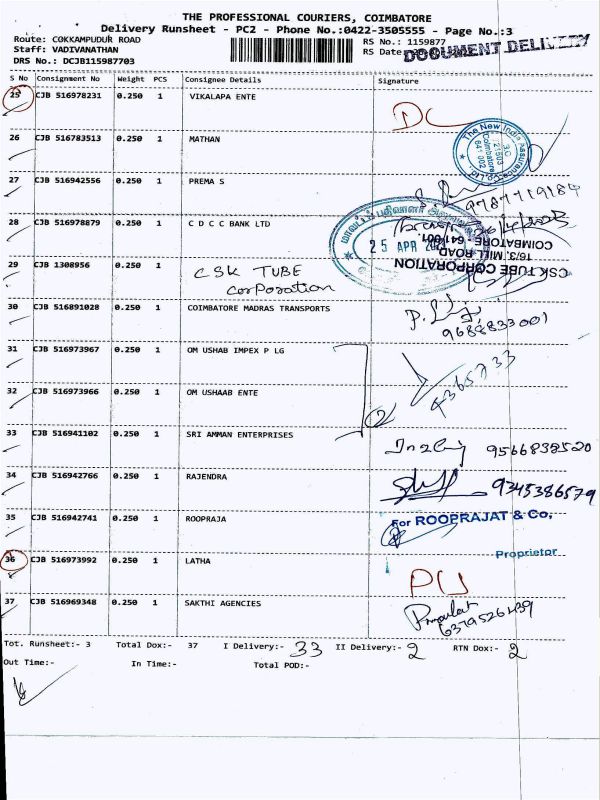 THE PROFESSIONAL COURIERS, COIMBATORE
Delivery Runsheet - PC2 - Phone No.:0422-3505555 - Page No.:3
Route: COKKAMPUDUR ROAD RS No.: 1159877
Staff: VADIVANATHAN RS Date: DOCUMENT DELIVERY
DRS No.: DCJB115987703
S No Consignment No Weight PCS Consignee Details Signature
25 CJB 516978231 0.250 1 VIKALAPA ENTE DC
26 CJB 516783513 0.250 1 MATHAN
The New India Assurance Co. Ltd
Coimbatore
641 002
27 CJB 516942556 0.250 1 PREMA S 9787719184
28 CJB 516978879 0.250 1 C D C C BANK LTD
25 APR
29 CJB 1308956 0.250 1 CSK TUBE Corporation
CSK TUBE CORPORATION
16/3, MILL ROAD
COIMBATORE - 641 001.
30 CJB 516891028 0.250 1 COIMBATORE MADRAS TRANSPORTS 9688833001
31 CJB 516973967 0.250 1 OM USHAB IMPEX P LG
32 CJB 516973966 0.250 1 OM USHAAB ENTE 2
33 CJB 516941102 0.250 1 SRI AMMAN ENTERPRISES 9566838520
34 CJB 516942766 0.250 1 RAJENDRA 9345386579
35 CJB 516942741 0.250 1 ROOPRAJA For ROOPRAJAT & Co,
Proprietor
36 CJB 516973992 0.250 1 LATHA
37 CJB 516969348 0.250 1 SAKTHI AGENCIES
Tot. Runsheet:- 3 Total Dox:- 37 I Delivery:- 33 II Delivery:- 2 RTN Dox:- 2
Out Time:- In Time:- Total POD:-